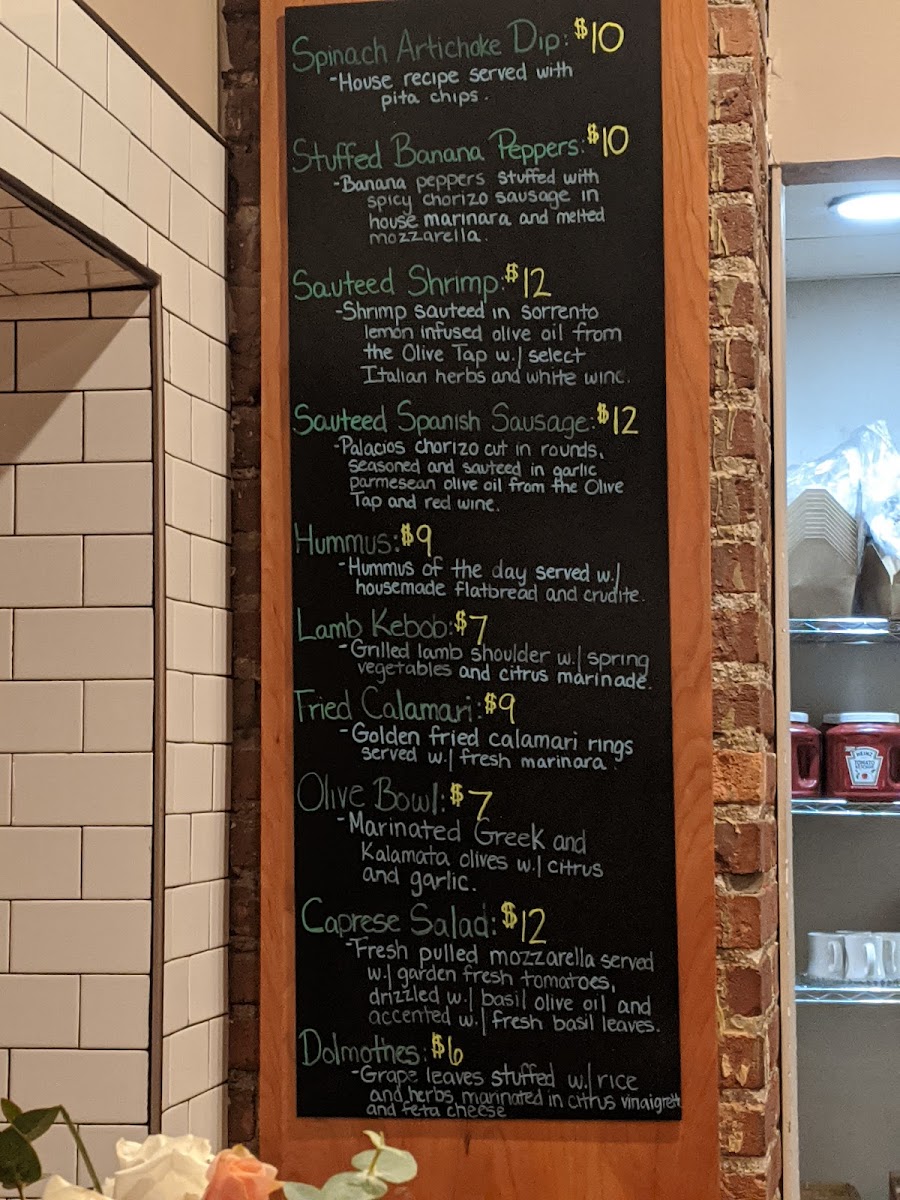 Spinach Artichoke Dip: $10
-House recipe served with
pita chips.
Stuffed Banana Peppers: $10
-Banana peppers stuffed with
spicy chorizo sausage in
house marinara and melted
mozzarella.
Sauteed Shrimp: $12
-Shrimp sauteed in sorrento
lemon infused olive oil from
the Olive Tap w./ select
Italian herbs and white wine.
Sauteed Spanish Sausage: $12
-Palacios chorizo cut in rounds,
seasoned and sauteed in garlic
parmesean olive oil from the Olive
Tap and red wine.
Hummus: $9
-Hummus of the day served w./
housemade flatbread and crudite.
Lamb Kebob: $7
-Grilled lamb shoulder w./ spring
vegetables and citrus marinade.
Fried Calamari: $9
-Golden fried calamari rings
served w./ fresh marinara.
Olive Bowl: $7
-Marinated Greek and
Kalamata olives w./ citrus
and garlic.
Caprese Salad: $12
-Fresh pulled mozzarella served
w./ garden fresh tomatoes,
drizzled w./ basil olive oil and
accented w./ fresh basil leaves.
Dolmothes: $6
-Grape leaves stuffed w./ rice
and herbs, marinated in citrus vinaigrette
and feta cheese
HEINZ
TOMATO
KETCHUP